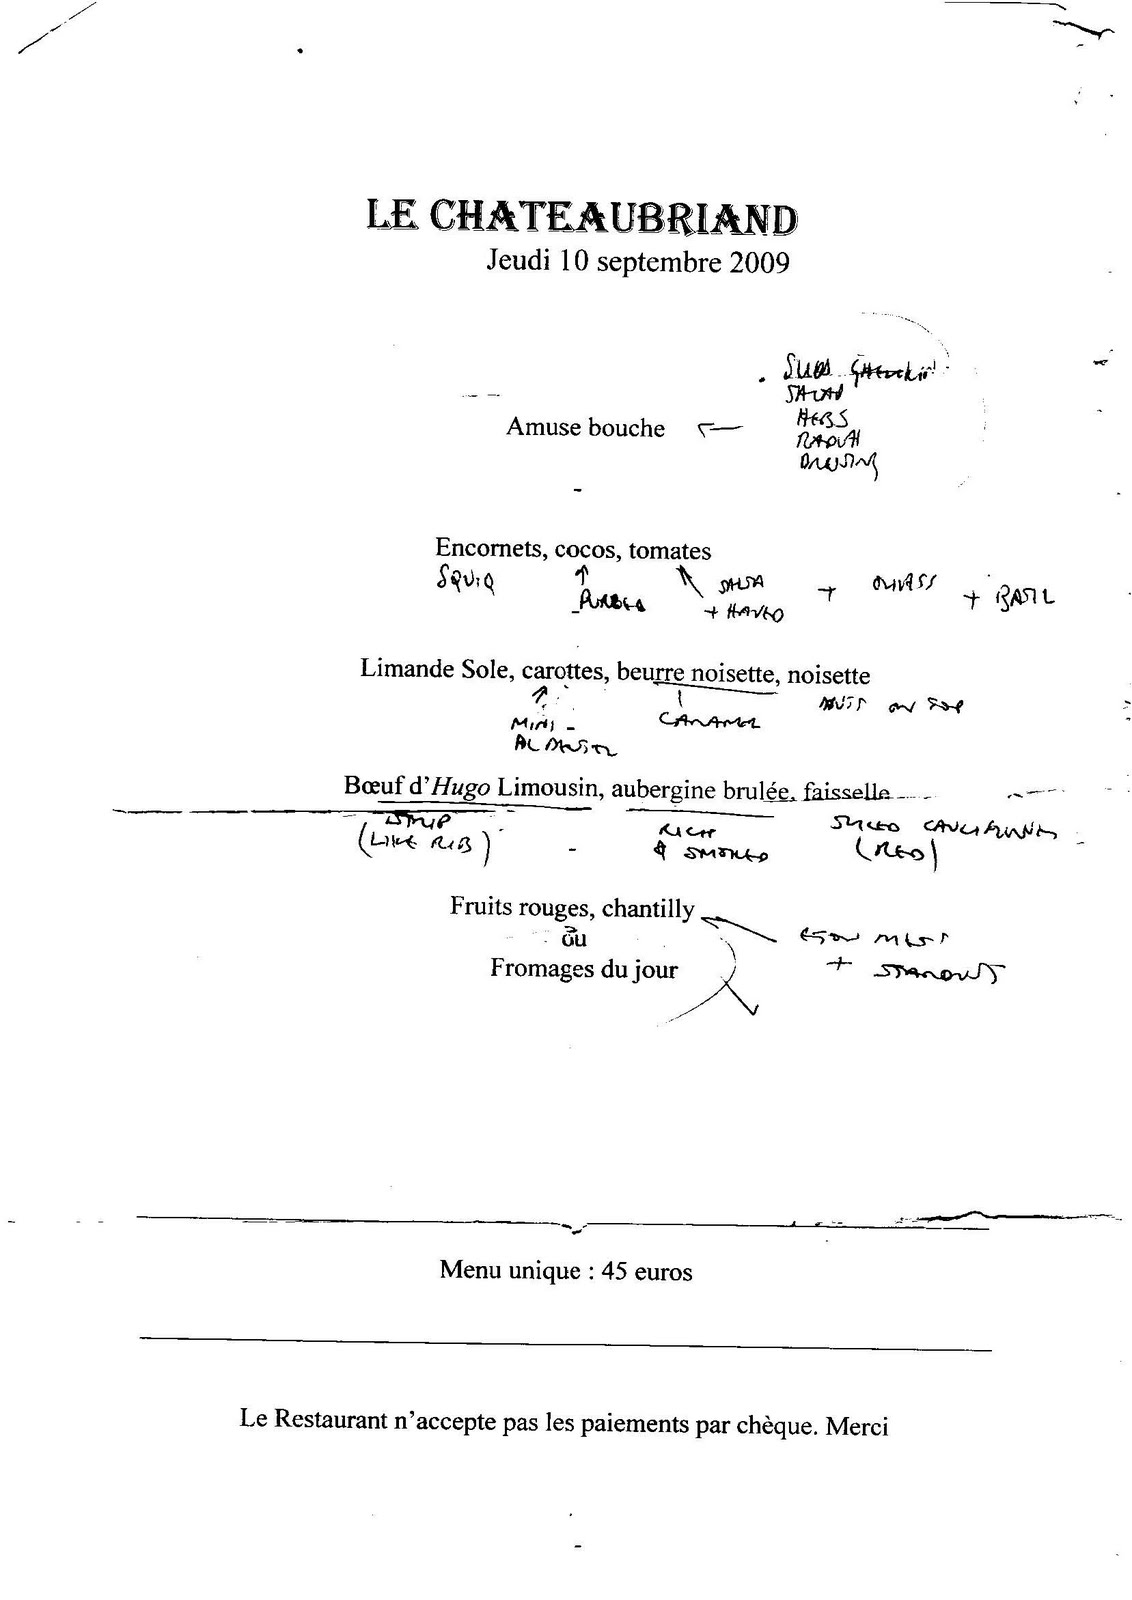 LE CHATEAUBRIAND
Jeudi 10 septembre 2009
SALAD
HERBS
Amuse bouche
-
Encornets, cocos, tomates
SQUID
SALSA
+ OLIVES + BASIL
+
Limande Sole, carottes, beurre noisette, noisette
NUTS ON TOP
MINI -
CARAMEL
Bœuf d'Hugo Limousin, aubergine brulée, faisselle
STRIP
RICH
SLICED CAULIFLOWER
(LIKE RIB)
-
& SMOKED
(RED)
Fruits rouges, chantilly
ou
Fromages du jour
+
Menu unique : 45 euros
Le Restaurant n'accepte pas les paiements par chèque. Merci
-